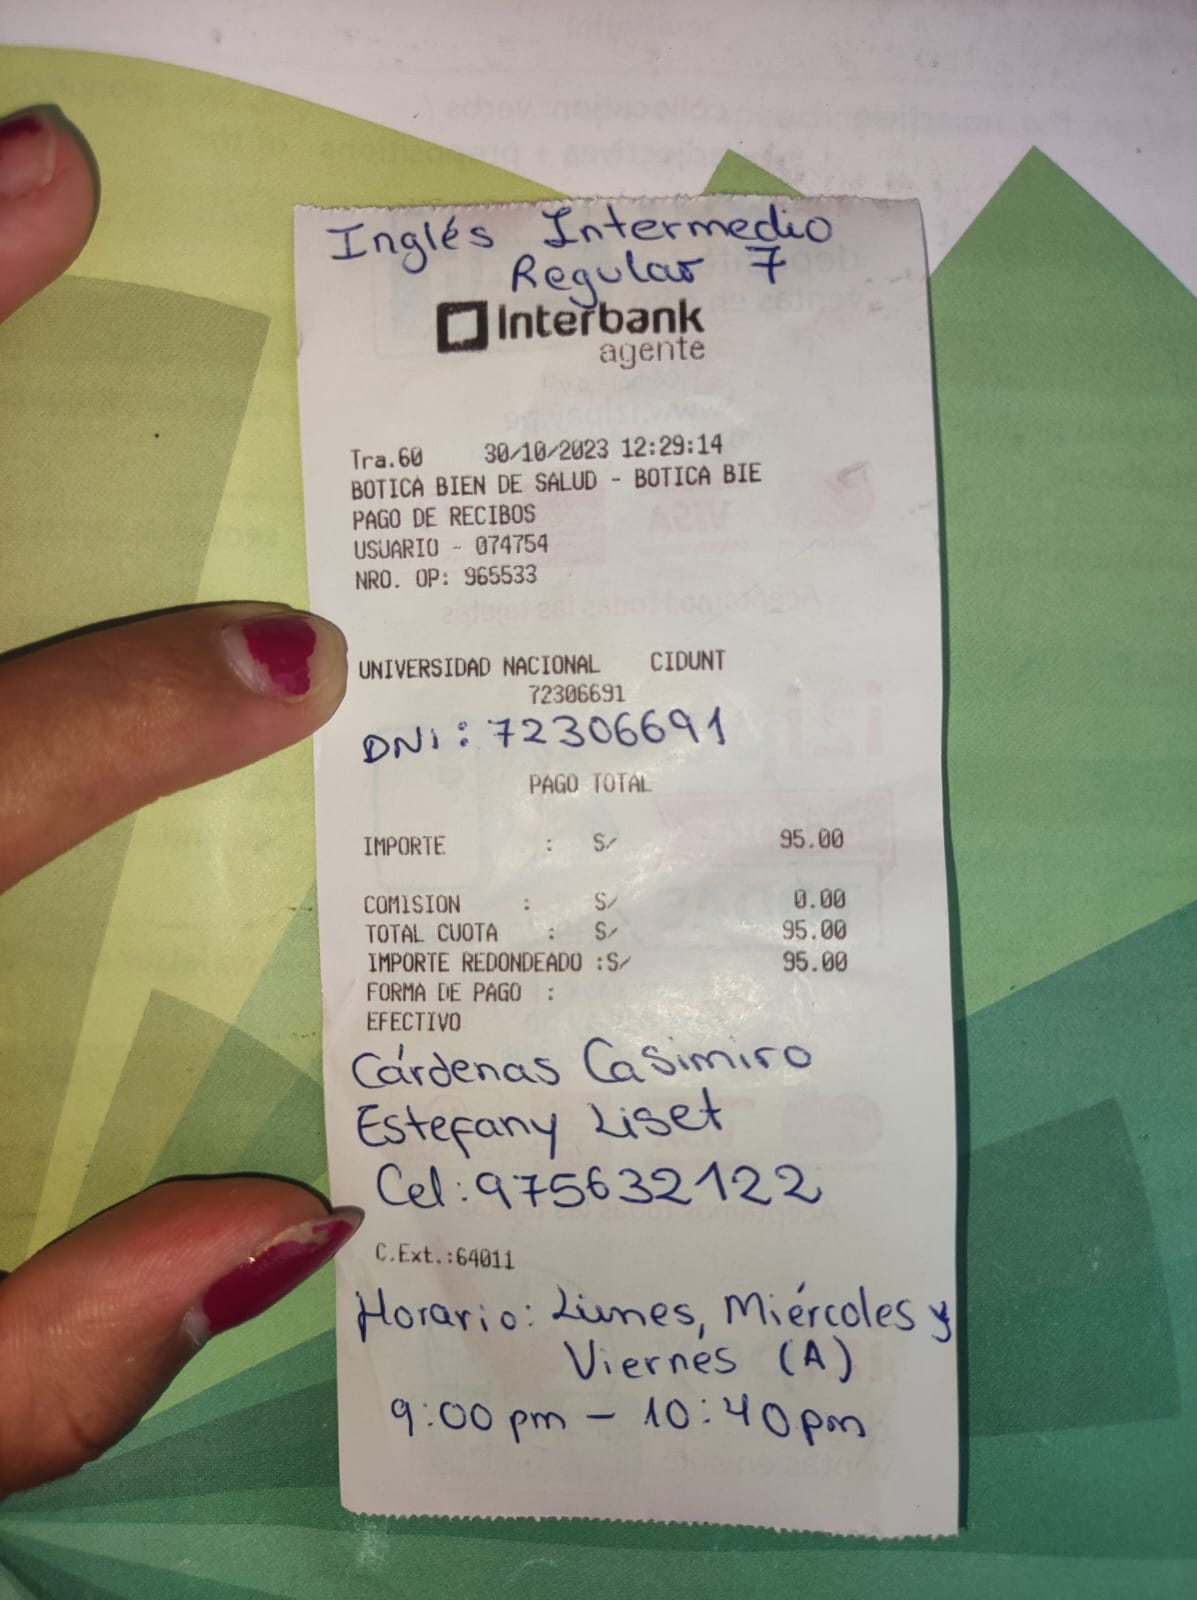 Inglés Intermedio
Regular 7
Interbank
agente
Tra.60 30/10/2023 12:29:14
BOTICA BIEN DE SALUD - BOTICA BIE
PAGO DE RECIBOS
USUARIO - 074754
NRO. OP: 965533
UNIVERSIDAD NACIONAL CIDUNT
72306691
DNI: 72306691
PAGO TOTAL
IMPORTE : S/ 95.00
COMISION : S/ 0.00
TOTAL CUOTA : S/ 95.00
IMPORTE REDONDEADO :S/ 95.00
FORMA DE PAGO :
EFECTIVO
Cárdenas Casimiro
Estefany Liset
Cel: 975632122
C.Ext.:64011
Horario: Lunes, Miércoles y
Viernes (A)
9:00 pm - 10:40 pm